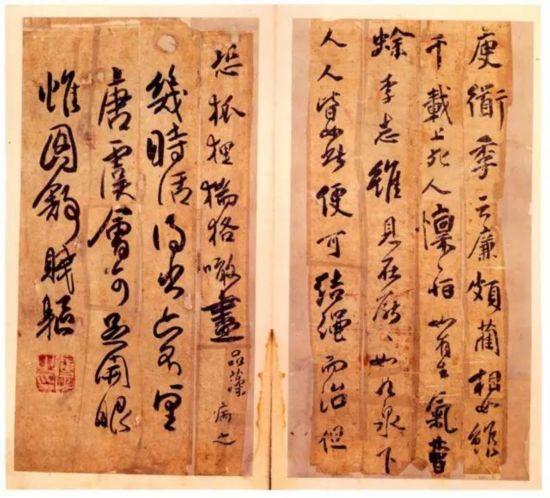 庾衟季云廉頗藺相如雖
千載上死人懍々恒如有生氣曹
蜍李志雖見在厭々如九泉下
人人皆如此便可結繩而治但
恐狐狸猯狢噉盡品藻
幾時
唐虞會開眼
惟賤軀